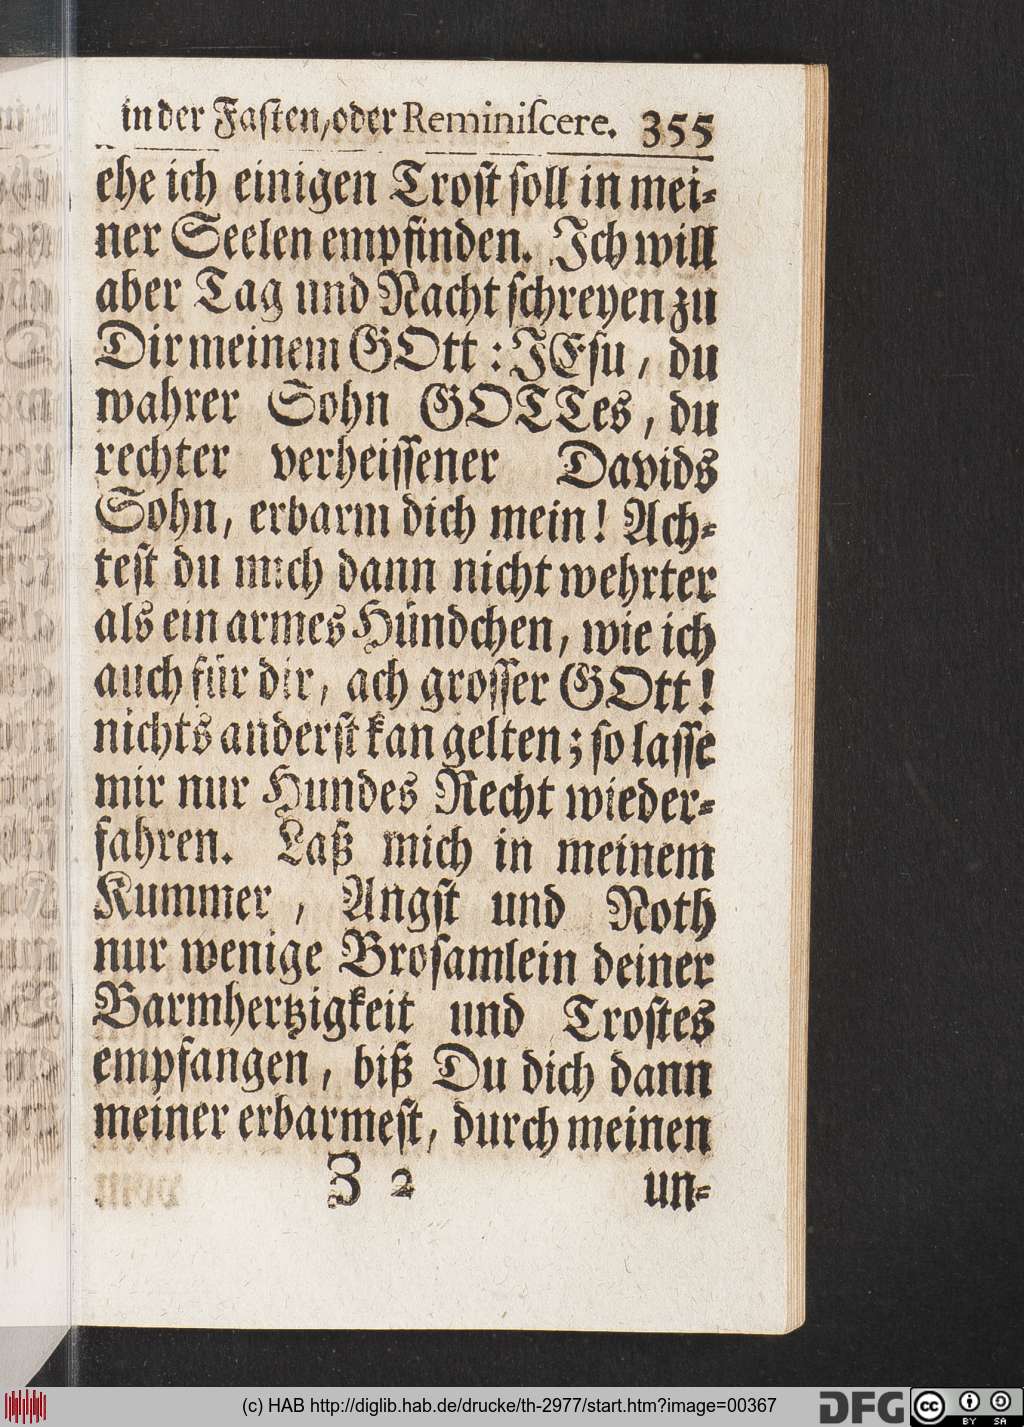 in der Faſten, oder Reminiſcere. 355
ehe ich einigen Troſt ſoll in mei⸗
ner Seelen empfinden. Ich will
aber Tag und Nacht ſchreyen zu
Dir meinem GOtt : JEſu, du
wahrer Sohn GOTTes, du
rechter verheiſſener Davids
Sohn, erbarm dich mein! Ach⸗
teſt du mich dann nicht wehrter
als ein armes Hündchen, wie ich
auch für dir, ach groſſer GOtt!
nichts anderſt kan gelten; ſo laſſe
mir nur Hundes Recht wieder⸗
fahren. Laß mich in meinem
Kummer, Angſt und Noth
nur wenige Broſamlein deiner
Barmhertzigkeit und Troſtes
empfangen, biß Du dich dann
meiner erbarmeſt, durch meinen
Z 2 un⸗
(c) HAB http://diglib.hab.de/drucke/th-2977/start.htm?image=00367
DFG cc BY SA